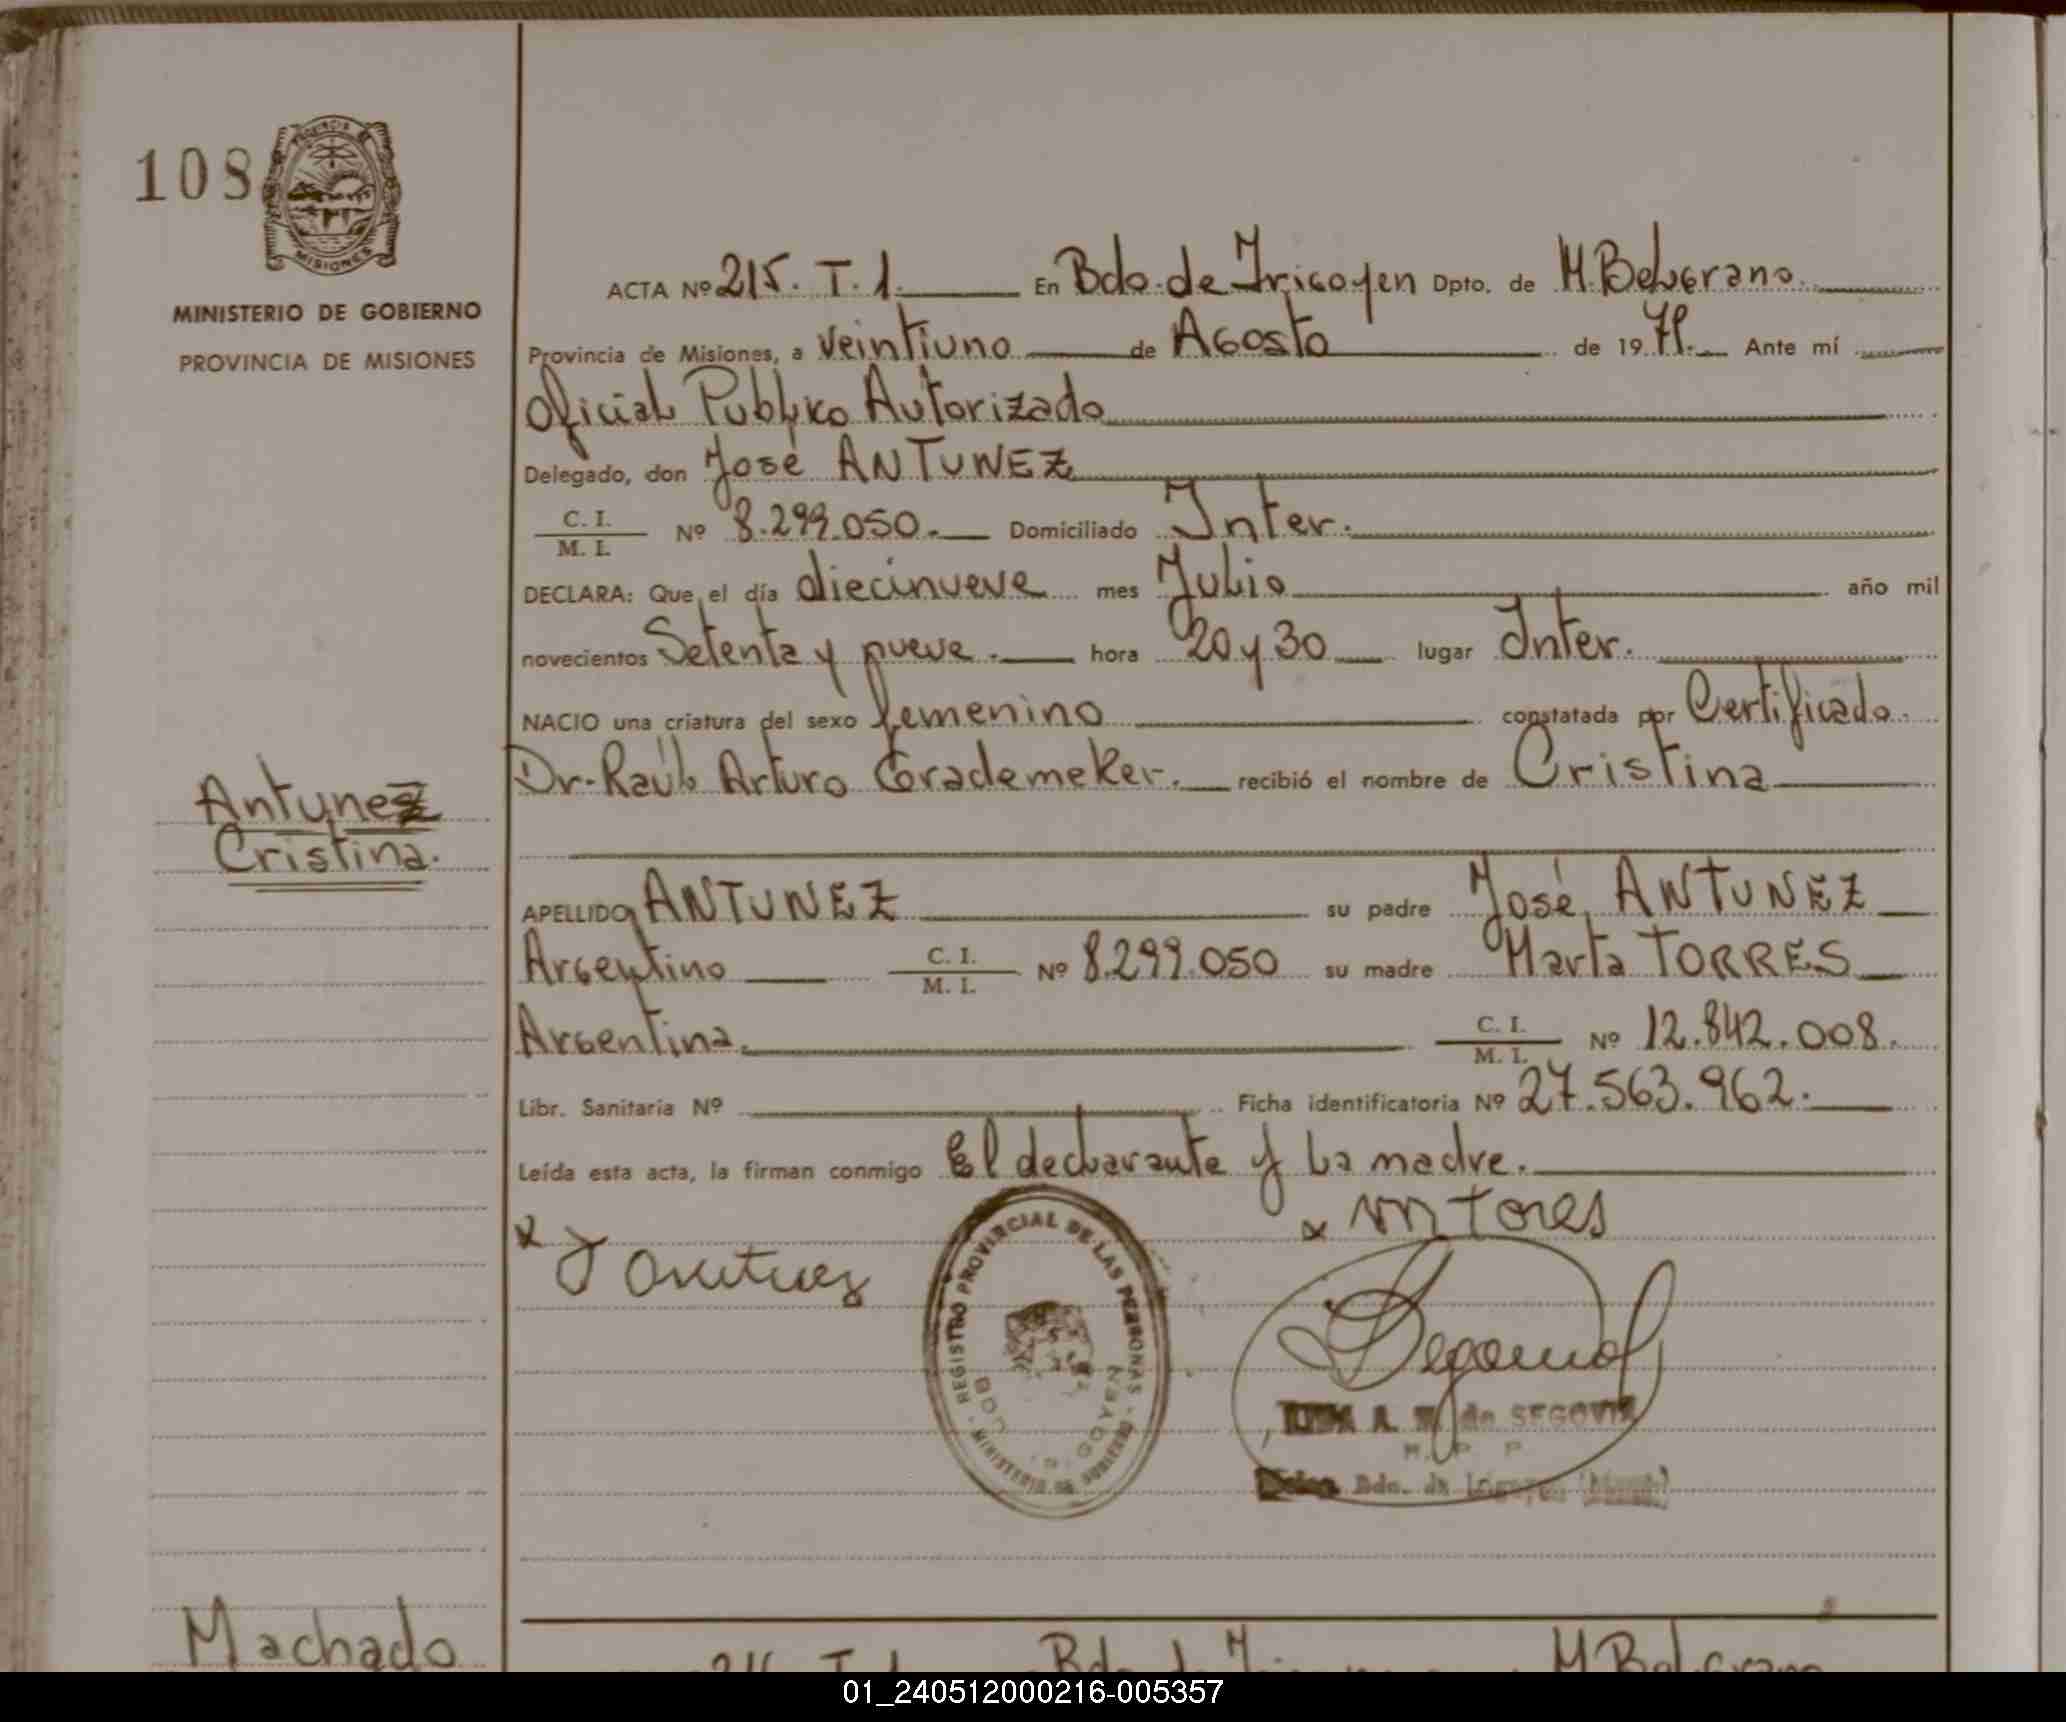 108
PROVINCIA DE
MISIONES
MINISTERIO DE GOBIERNO
PROVINCIA DE MISIONES
ACTA Nº 215. T. 1. En Bdo. de Irigoyen Dpto. de M. Belgrano.
Provincia de Misiones, a veintiuno de Agosto de 19 79. Ante mí
Oficial Publico Autorizado
Delegado, don José ANTUNEZ
C. I.
M. I. Nº 8.299.050. Domiciliado Inter.
DECLARA: Que el día diecinueve mes Julio año mil
novecientos Setenta y nueve. hora 20 y 30 lugar Inter.
NACIO una criatura del sexo femenino constatada por Certificado.
Dr. Raúl Arturo Grademeker. recibió el nombre de Cristina
Antunez
Cristina.
APELLIDO ANTUNEZ su padre José ANTUNEZ
Argentino C. I.
M. I. Nº 8.299.050 su madre Marta TORRES
Argentina. C. I.
M. I. Nº 12.842.008.
Libr. Sanitaria Nº Ficha identificatoria Nº 27.563.962.
Leída esta acta, la firman conmigo El declarante y la madre.
x m tores
x J Antunez
REGISTRO PROVINCIAL DE LAS PERSONAS
MINISTERIO DE GOBIERNO
BDO. IRIGOYEN
Segovia
A. de SEGOVIA
Bdo. de Irigoyen
Machado
T. 1 Bdo. de M. Belgrano
01_240512000216-005357